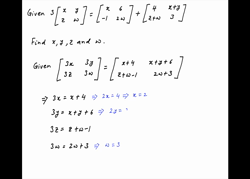 Given 3 [x y; 2 w] = [x 6; -1 2w] + [4 x+y; 2+w 3]
Find x, y, z and w.
Given [3x 3y; 3z 3w] = [x+4 x+y+6; z+w-1 2w+3]
⇒ 3x = x+4 ⇒ 2x = 4 ⇒ x = 2
3y = x+y+6 ⇒ 2y =
3z = z+w-1
3w = 2w+3 ⇒ w = 3